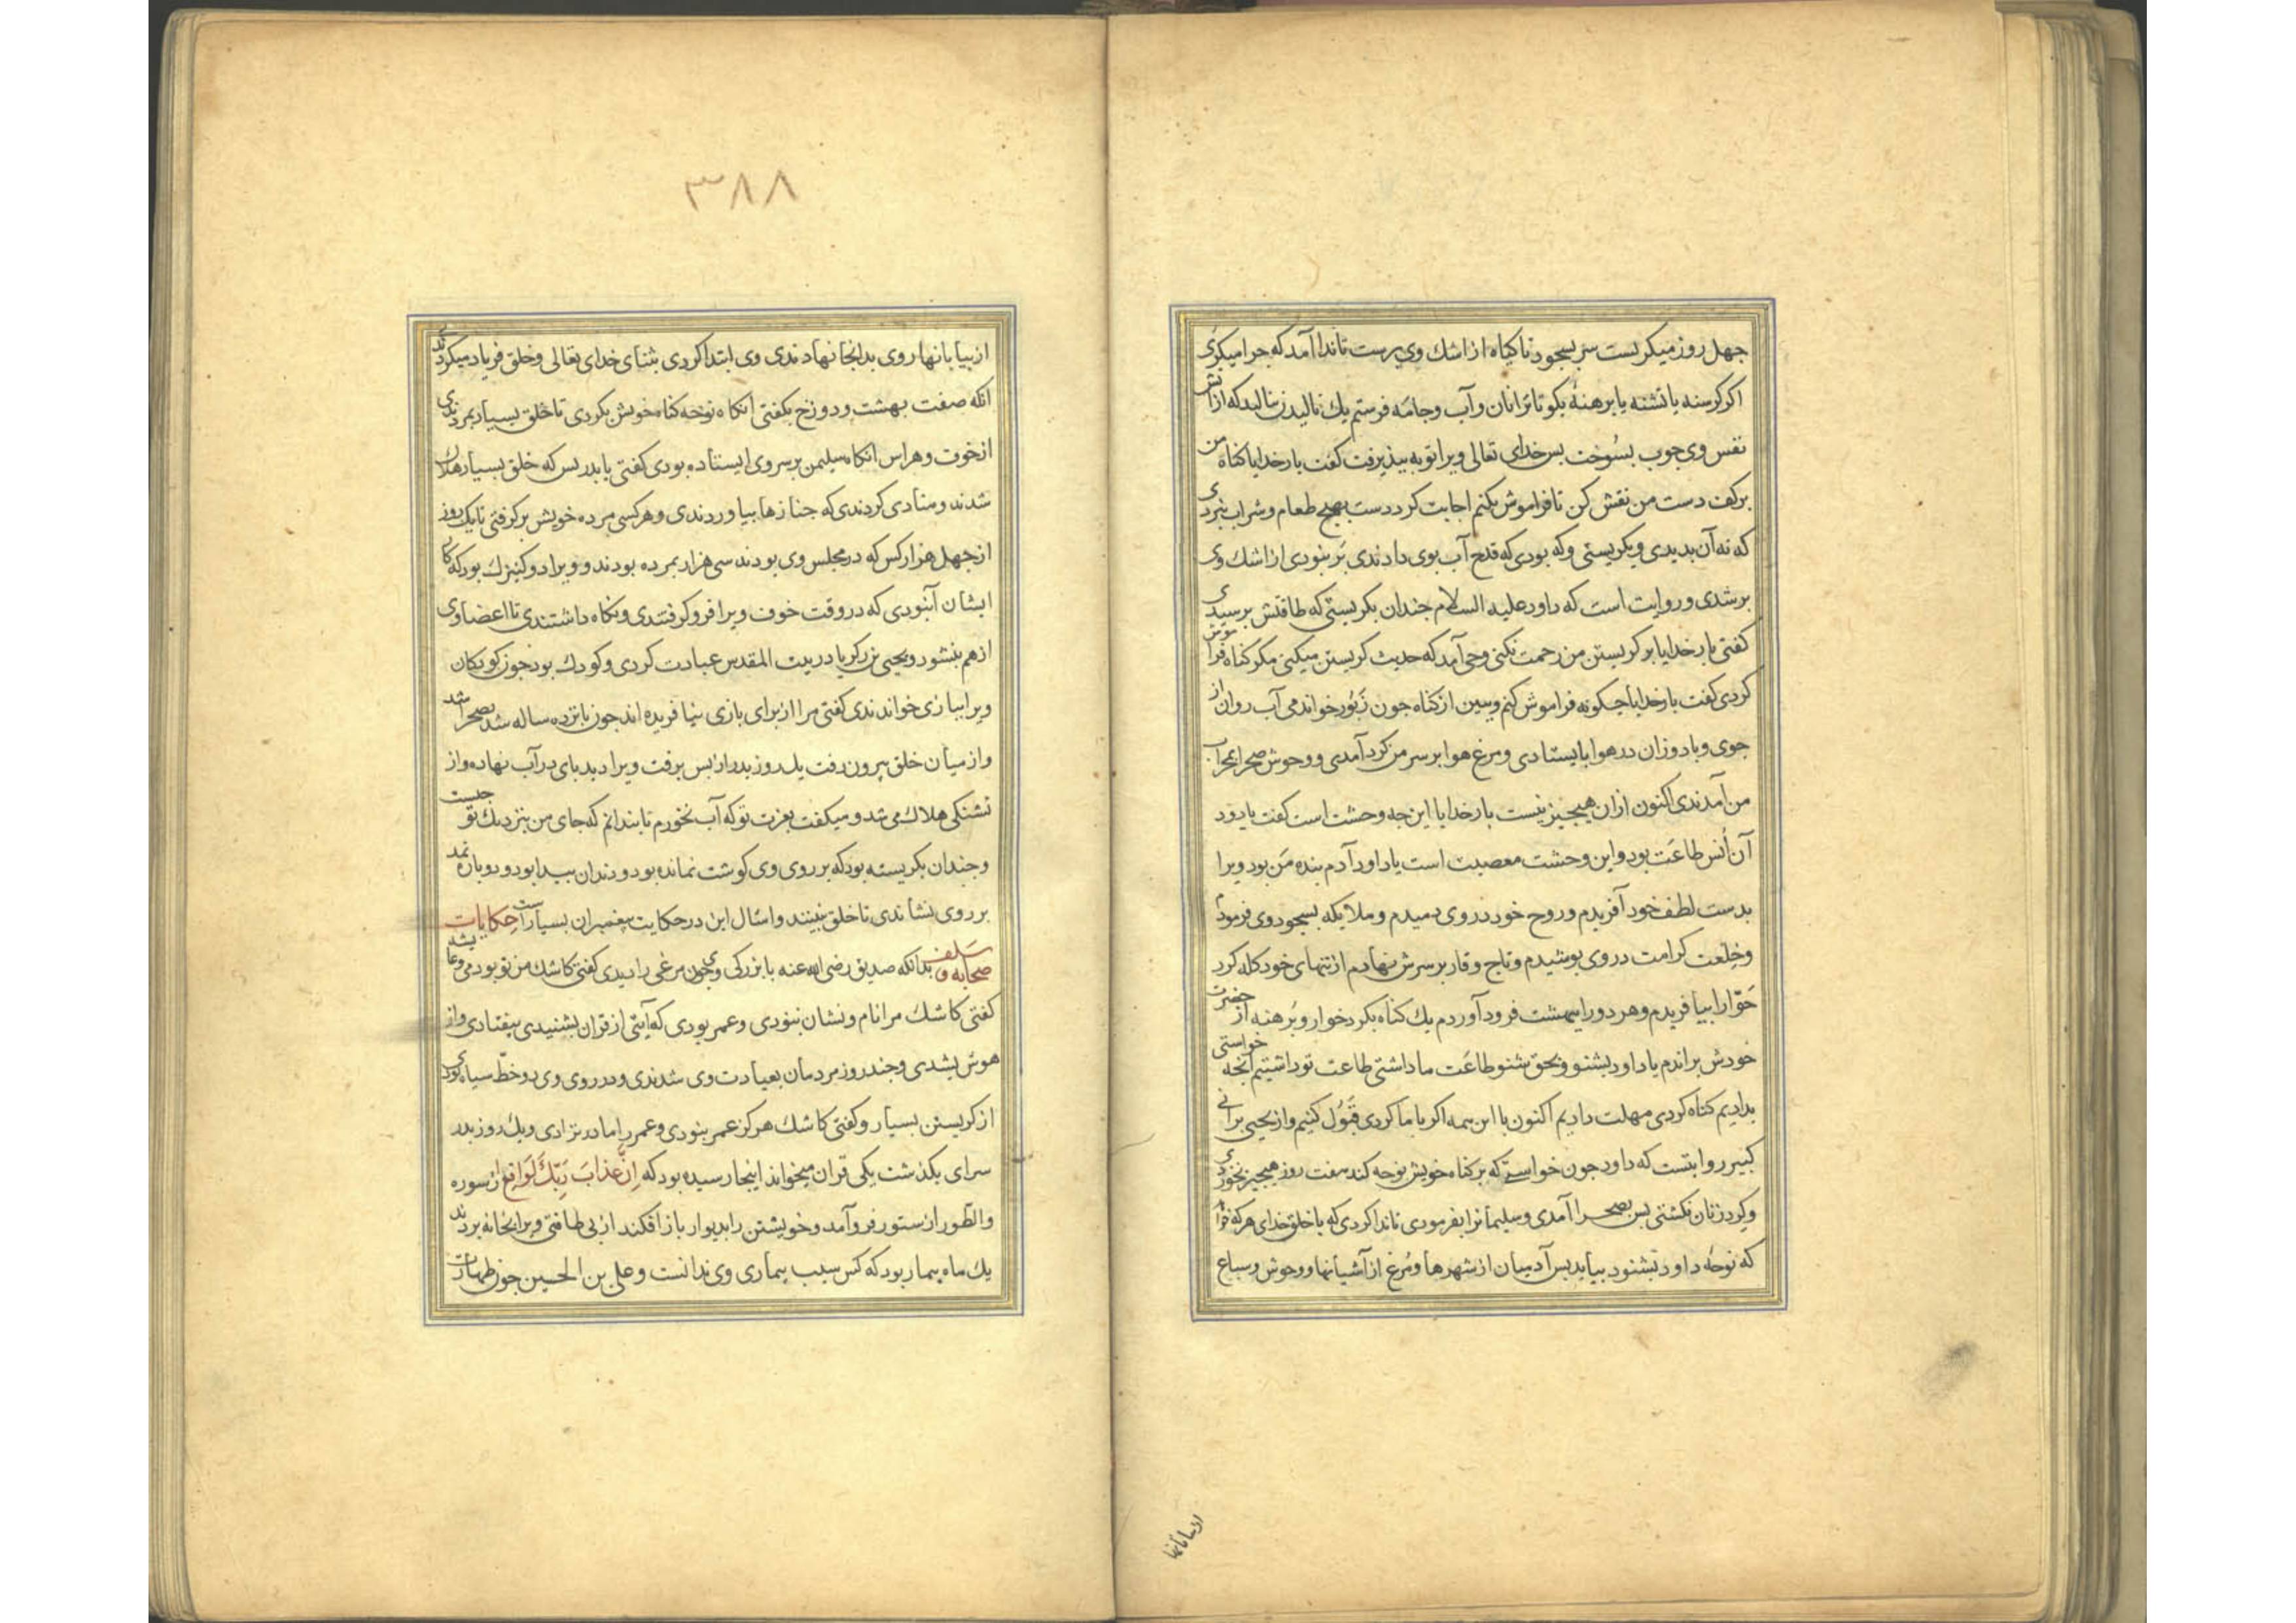 جهل روز میکریست سر بسجود تا کیاه از اشك وی برست تا ندا آمد که جرا میکری
اکر کرسنه یا تشنه یا برهنهٔ بکو تا ترا نان و آب و جامه فرستم یك نالیدن بنالید که از آتش
نفس وی جوب بسُوخت بس خدای تعالی ویرا توبه ببذیرفت کفت بار خدایا کناه من
بر کف دست من نقش کن تا فراموش نکنم اجابت کرد دست بهیج طعام و شراب نبردی
که نه آن بدیدی و بکریستی وکه بودی که قدح آب بوی دادندی بُر نبودی از اشك وی
بر شدی و روایت است که داود علیه السلام جندان بکریستی که طاقتش برسیدی
کفتی بار خدایا بر کریستن من رحمت نکنی وحی آمد که حدیث کریستن میکنی مکر کناه فراموش
کردی کفت بار خدایا جکونه فراموش کنم و بیش از کناه جون زَبُور خواندمی آب روان از
جوی و باد وزان در هوا بایستادی و مرغ هوا بر سر من کرد آمدی و وحوش صحرا بمحراب
من آمدندی اکنون ازان هیجیز نیست بار خدایا این جه وحشت است کفت یا داود
آن اُنس طاعَت بود و این وحشت معصیت است یا داود آدم بنده من بود ویرا
بدست لطف خود آفریدم و روح خود در وی دمیدم و ملایکه بسجود وی فرمودم
و خِلعت کرامت در وی بوشیدم و تاج وقار بر سرش نهادم از تنهای خود کله کرد
حَوّا را بیافریدم و هر دو را ببهشت فرود آوردم یك کناه بکرد خوار و برهنه از حضرت
خودش براندم یا داود بشنو و بحق بشنو طاعَت ما داشتی طاعت تو داشتیم آنجه خواستی
بدادیم کناه کردی مهلت دادیم اکنون با این همه اکر با ما کردی قَبُول کنیم و از یحیی برانی
کبیر روایتست که داود جون خواستی که بر کناه خویش نوحه کند هفت روز هیجیز نخوردی
و کرد زنان نکشتی بس بصحرا آمدی و سلیمانرا بفرمودی تا ندا کردی که یا خلق خدای هر که خواهد
که نوحهٔ داود بشنود بیاید بس آدمیان از شهرها و مُرغ از آشیانها و وحوش و سباع
از بیابانها
٣٨٨
از بیابانها روی بدانجا نهادندی وی ابتدا کردی بثنای خدای تعالی و خلق فریاد میکردند
آنکه صفت بهشت و دوزخ بکفتی آنکاه نوحه کناه خویش بکردی تا خلق بسیار بمردندی
از خوف و هراس آنکاه سلیمن بر سر وی ایستاده بودی کفتی یا بدر بس که خلق بسیار هلاك
شدند و منادی کردندی که جنازها بیاوردندی و هر کسی مرده خویش بر کرفتی تا یك روز
از جهل هزار کس که در مجلس وی بودند سی هزار بمرده بودند و ویرا دو کنیزك بود که کار
ایشان آن بودی که در وقت خوف ویرا فرو کرفتندی و نکاه داشتندی تا اعضاء وی
از هم بنشود و یحیی بن زکریا در بیت المقدس عبادت کردی و کودك بود جون کودکان
ویرا ببازی خواندندی کفتی مرا از برای بازی نیافریده اند جون بانزده ساله شد بصحرا شد
و از میان خلق بیرون رفت یك روز بدر از بس برفت ویرا دید بای در آب نهاده و از
تشنکی هلاك می شد و میکفت بعزت تو که آب نخورم تا بندانم که جای من بنزدیك تو جیست
و جندان بکریسته بود که بر روی وی کوشت نمانده بود و دندان بیدا بود و دو باره نمد
بر روی نشاندی تا خلق نبینند و امثال این در حکایت بیغمبران بسیار است حکایات
صحابه و سلف بدانکه صدیق رضی الله عنه با بزرکی وی جون مرغی را دیدی کفتی کاشك من تو بودمی و عایشه
کفتی کاشك مرا نام و نشان نبودی و عمر بودی که آیتی از قران بشنیدی بیفتادی و از
هوش بشدی و جند روز مردمان بعیادت وی شدندی و در روی وی دو خطّ سیاه بودی
از کریستن بسیار و کفتی کاشك هرکز عمر نبودی و عمر را مادر نزادی و یك روز بدر
سرای بکذشت یکی قران میخواند اینجا رسیده بود که اِنَّ عذابَ رَبِّكَ لَوَاقِع از سوره
والطّور از ستور فرو آمد و خویشتن را بدیوار باز افکند از بی طاقتی ویرا بخانه بردند
یك ماه بیمار بود که کس سبب بیماری وی ندانست و علی بن الحسین جون طهارت